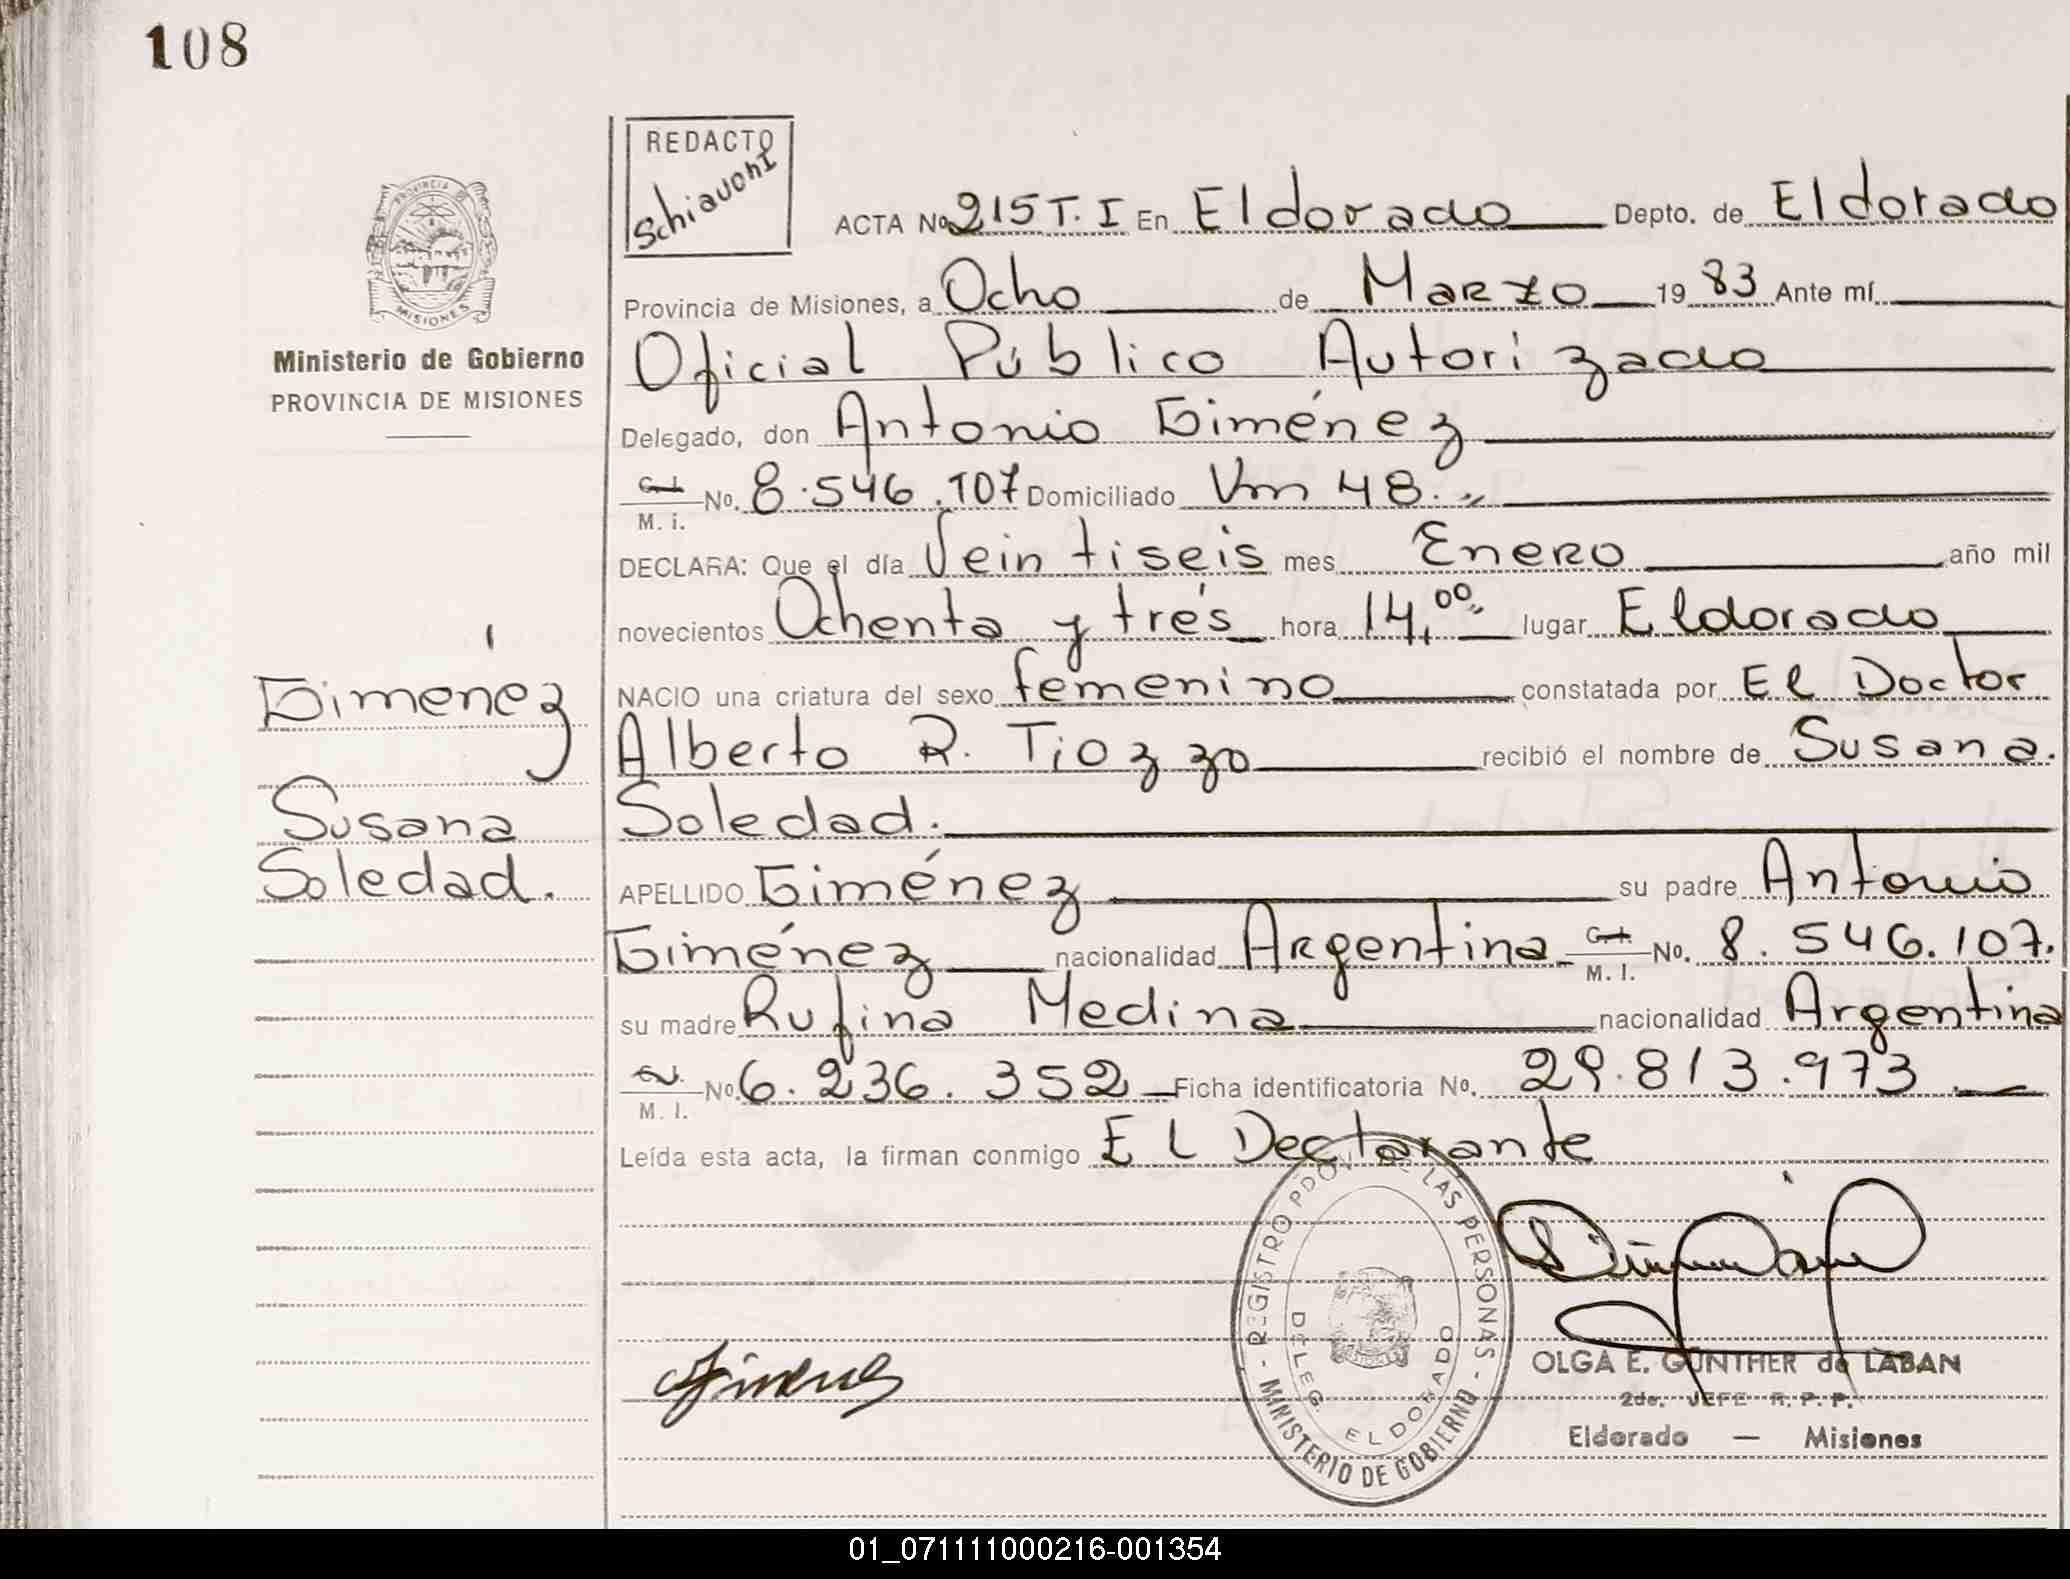 108
REDACTO
Schiavoni
PROVINCIA DE
MISIONES
Ministerio de Gobierno
PROVINCIA DE MISIONES
ACTA No. 215 T. I En Eldorado Depto. de Eldorado
Provincia de Misiones, a Ocho de Marzo 19 83 Ante mí
Oficial Público Autorizado
Delegado, don Antonio Giménez
M. i. No. 8.546.107 Domiciliado Km 48.
DECLARA: Que el día Veintiseis mes Enero año mil
novecientos Ochenta y trés hora 14,00 lugar Eldorado
NACIO una criatura del sexo femenino constatada por El Doctor
Alberto R. Tiozzo recibió el nombre de Susana
Soledad.
APELLIDO Giménez su padre Antonio
Giménez nacionalidad Argentina M. I. No. 8.546.107.
su madre Rufina Medina nacionalidad Argentina
M. I. No. 6.236.352 Ficha identificatoria No. 29.813.973
Leída esta acta, la firman conmigo El Declarante
Giménez
Susana
Soledad.
REGISTRO PDO. LAS PERSONAS
MINISTERIO DE GOBIERNO
DELEG. ELDORADO
OLGA E. GUNTHER de LABAN
2do. JEFE R. P. P.
Eldorado — Misiones
01_071111000216-001354